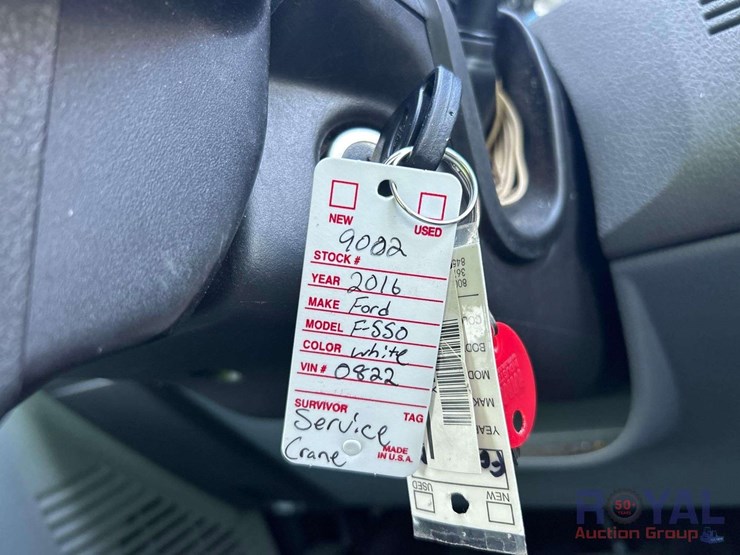 NEW USED
9002
STOCK #
YEAR 2016
MAKE Ford
MODEL F-550
COLOR white
VIN # 0822
SURVIVOR TAG
Service
Crane
MADE
IN U.S.A.
BOD
MOD
MAK
YEA
NEW USED
ROYAL
Auction Group